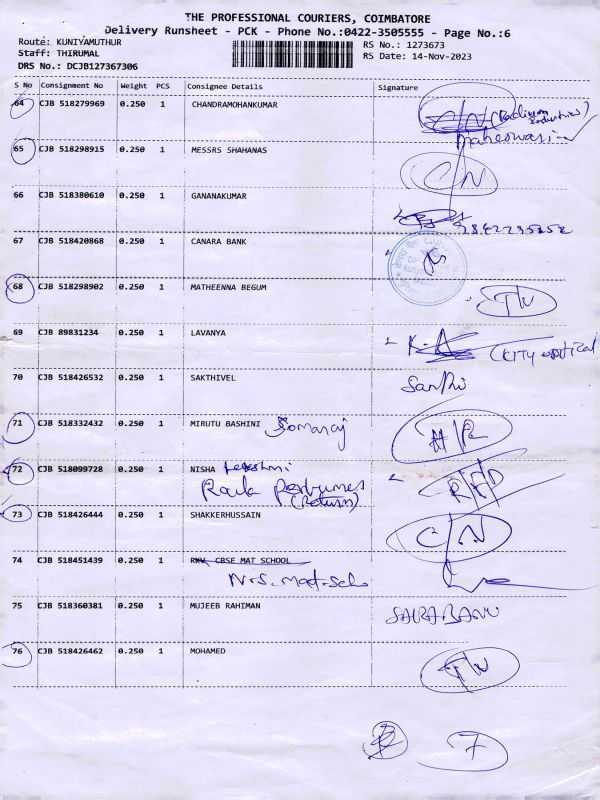 THE PROFESSIONAL COURIERS, COIMBATORE
Delivery Runsheet - PCK - Phone No.:0422-3505555 - Page No.:6
Route: KUNIYAMUTHUR RS No.: 1273673
Staff: THIRUMAL RS Date: 14-Nov-2023
DRS No.: DCJB127367306
S No Consignment No Weight PCS Consignee Details Signature
64 CJB 518279969 0.250 1 CHANDRAMOHANKUMAR
Maheswari
65 CJB 518298915 0.250 1 MESSRS SHAHANAS C/N
66 CJB 518380610 0.250 1 GANANAKUMAR
67 CJB 518420868 0.250 1 CANARA BANK
68 CJB 518298902 0.250 1 MATHEENNA BEGUM
69 CJB 89831234 0.250 1 LAVANYA
70 CJB 518426532 0.250 1 SAKTHIVEL
71 CJB 518332432 0.250 1 MIRUTU BASHINI Somaraj
72 CJB 518099728 0.250 1 NISHA
Perfumes
(Return)
73 CJB 518426444 0.250 1 SHAKKERHUSSAIN C/N
74 CJB 518451439 0.250 1 RKV CBSE MAT SCHOOL
N.S. Mat. Sch
75 CJB 518360381 0.250 1 MUJEEB RAHIMAN SAIRABANU
76 CJB 518426462 0.250 1 MOHAMED
7